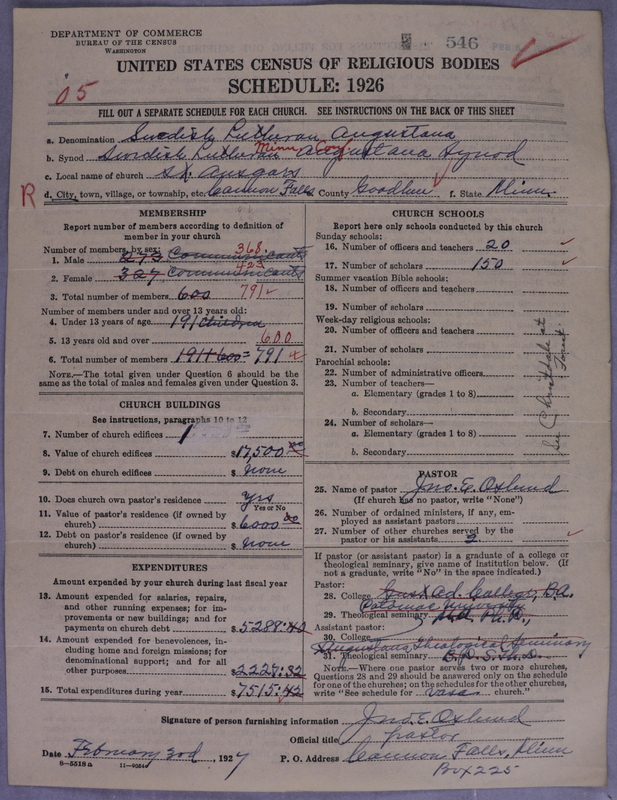 DEPARTMENT OF COMMERCE
BUREAU OF THE CENSUS
WASHINGTON
546
UNITED STATES CENSUS OF RELIGIOUS BODIES
SCHEDULE: 1926
05
FILL OUT A SEPARATE SCHEDULE FOR EACH CHURCH. SEE INSTRUCTIONS ON THE BACK OF THIS SHEET
a. Denomination Swedish Lutheran Augustana
Minn Conf
b. Synod Swedish Lutheran Augustana Synod
c. Local name of church St. Ansgars
R d. City, town, village, or township, etc. Cannon Falls County Goodhue f. State Minn.
MEMBERSHIP
Report number of members according to definition of
member in your church
Number of members, by sex: 368
1. Male 273 Communicants
423
2. Female 327 Communicants
3. Total number of members 600 791
Number of members under and over 13 years old:
4. Under 13 years of age 191 children
5. 13 years old and over 600
6. Total number of members 191+600= 791
NOTE.—The total given under Question 6 should be the
same as the total of males and females given under Question 3.
CHURCH BUILDINGS
See instructions, paragraphs 10 to 12
7. Number of church edifices 1
8. Value of church edifices $17,500 00
9. Debt on church edifices $ None
10. Does church own pastor's residence yes
Yes or No
11. Value of pastor's residence (if owned by
church) $6000 00
12. Debt on pastor's residence (if owned by
church) $ None
EXPENDITURES
Amount expended by your church during last fiscal year
13. Amount expended for salaries, repairs,
and other running expenses; for im-
provements or new buildings; and for
payments on church debt $5288:
14. Amount expended for benevolences, in-
cluding home and foreign missions; for
denominational support; and for all
other purposes $2227:32
15. Total expenditures during year $7515:42
CHURCH SCHOOLS
Report here only schools conducted by this church
Sunday schools:
16. Number of officers and teachers 20
17. Number of scholars 150
Summer vacation Bible schools:
18. Number of officers and teachers
19. Number of scholars
Week-day religious schools:
20. Number of officers and teachers
21. Number of scholars
Parochial schools:
22. Number of administrative officers
23. Number of teachers—
a. Elementary (grades 1 to 8)
b. Secondary
24. Number of scholars—
a. Elementary (grades 1 to 8)
b. Secondary
PASTOR
25. Name of pastor Jno. E. Oslund
(If church has no pastor, write "None")
26. Number of ordained ministers, if any, em-
ployed as assistant pastors
27. Number of other churches served by the
pastor or his assistants 2
If pastor (or assistant pastor) is a graduate of a college or
theological seminary, give name of institution below. (If
not a graduate, write "No" in the space indicated.)
Pastor:
28. College Gust. Ad. College, B.A.
Potomac University
29. Theological seminary
Assistant pastor:
30. College
Augustana Theological Seminary
31. Theological seminary
NOTE.—Where one pastor serves two or more churches,
Questions 28 and 29 should be answered only on the schedule
for one of the churches; on the schedules for the other churches,
write "See schedule for Vasa church."
Signature of person furnishing information Jno. E. Oslund
Official title pastor
Date February 3rd, 1927 P. O. Address Cannon Falls, Minn
8—5518a 11—9054 Box 225